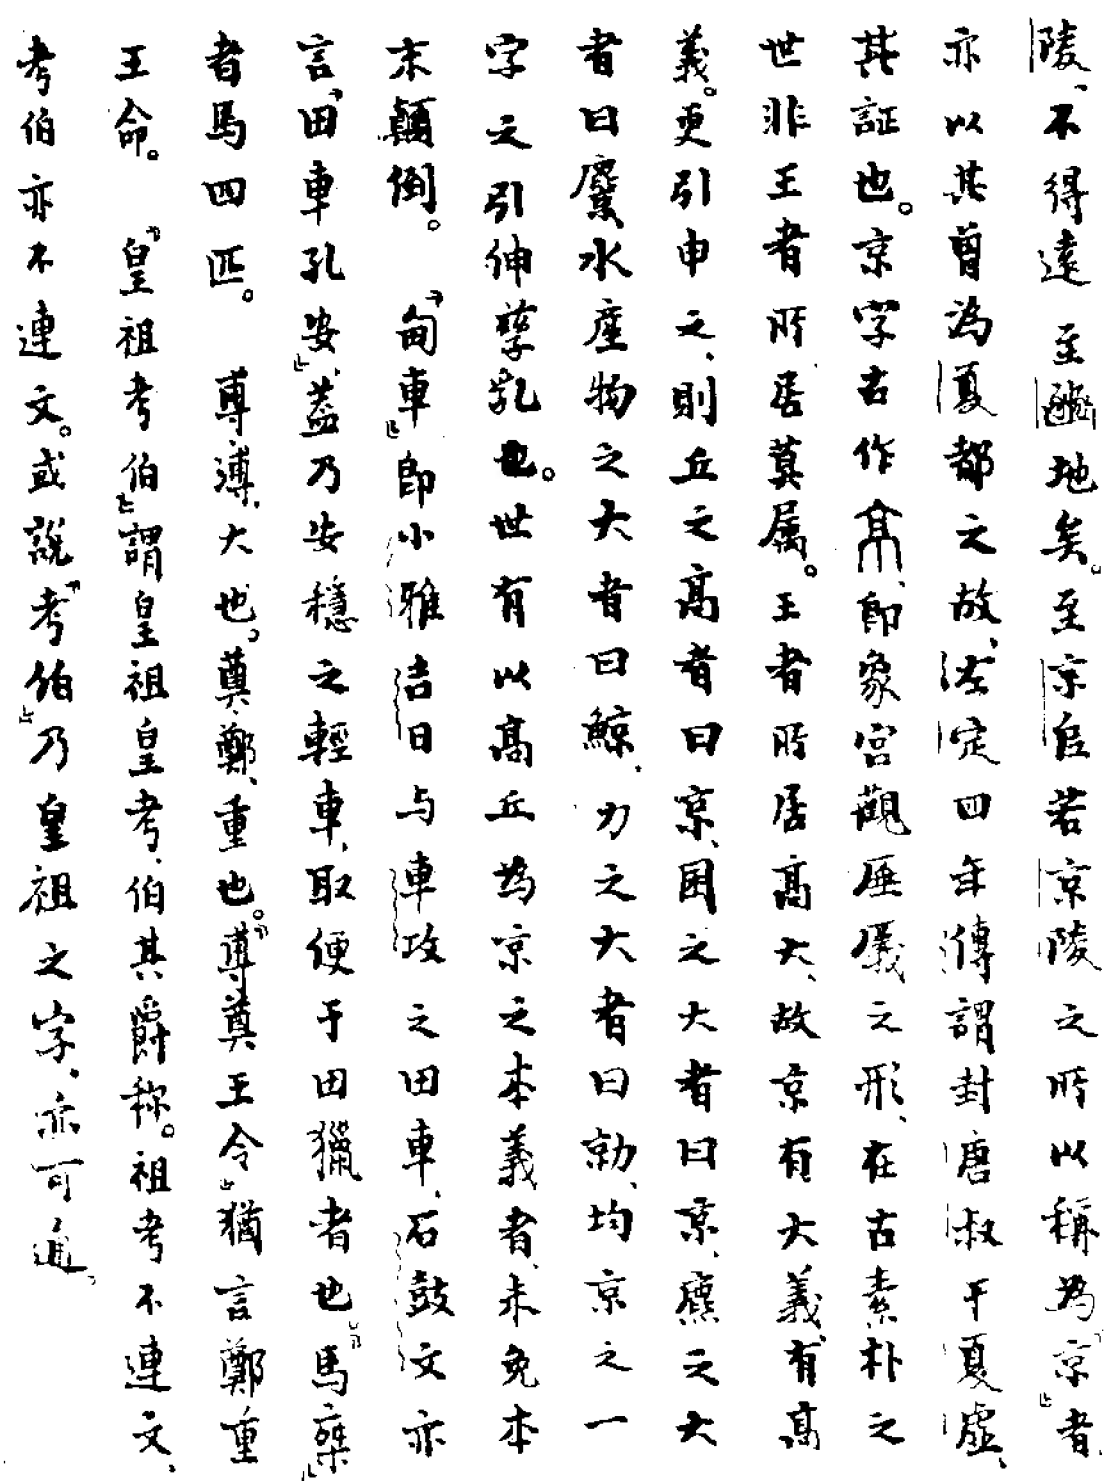 陵、不得遠至豳地矣。至京自若京陵之所以稱為「京」者、
亦以其曾為夏都之故、左定四年傳謂封唐叔于夏虛、
其証也。京字古作、即象宮觀厜㕒之形、在古素朴之
世非王者所居莫属。王者所居高大、故京有大義、有高
義。更引申之、則丘之高者曰京、囷之大者曰京、麃之大
者曰麖、水產物之大者曰鯨、力之大者曰勍、均京之一
字之引伸孳乳也。世有以高丘為京之本義者、未免本
末顛倒。「甸車」即小雅吉日与車攻之田車、石鼓文亦
言、田車孔安」、蓋乃安穩之輕車、取便于田獵者也。「馬㮚」
者馬四匹。尃溥、大也。奠鄭、重也。「尃奠王令」猶言鄭重
王命。「皇祖考伯」謂皇祖皇考、伯其爵称。祖考不連文、
考伯亦不連文。或說「考伯」乃皇祖之字、亦可通。